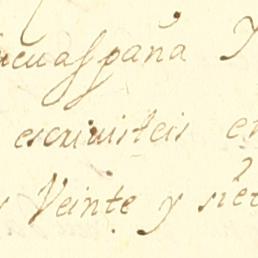 nueuaspaña
escriuisteis en
Veinte y siet